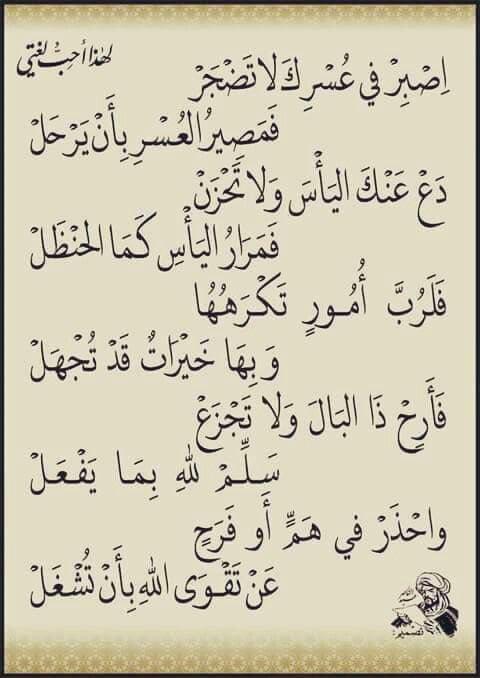 لهذا أحب لغتي
اِصْبِرْ في عُسْرِكَ لا تَضْجَرْ
فَمَصِيرُ العُسْرِ بِأَنْ يَرْحَلْ
دَعْ عَنْكَ اليَأْسَ وَلا تَحْزَنْ
فَمَرَارُ اليَأْسِ كَمَا الحَنْظَلْ
فَلَرُبَّ أُمُورٍ تَكْرَهُهَا
وَبِهَا خَيْرَاتٌ قَدْ تُجْهَلْ
فَأَرِحْ ذَا البَالَ وَلا تَجْزَعْ
سَلِّمْ لِلهِ بِمَا يَفْعَلْ
واحْذَرْ في هَمٍّ أَو فَرَحٍ
عَنْ تَقْوَى اللهِ بِأَنْ تُشْغَلْ
تصميم: